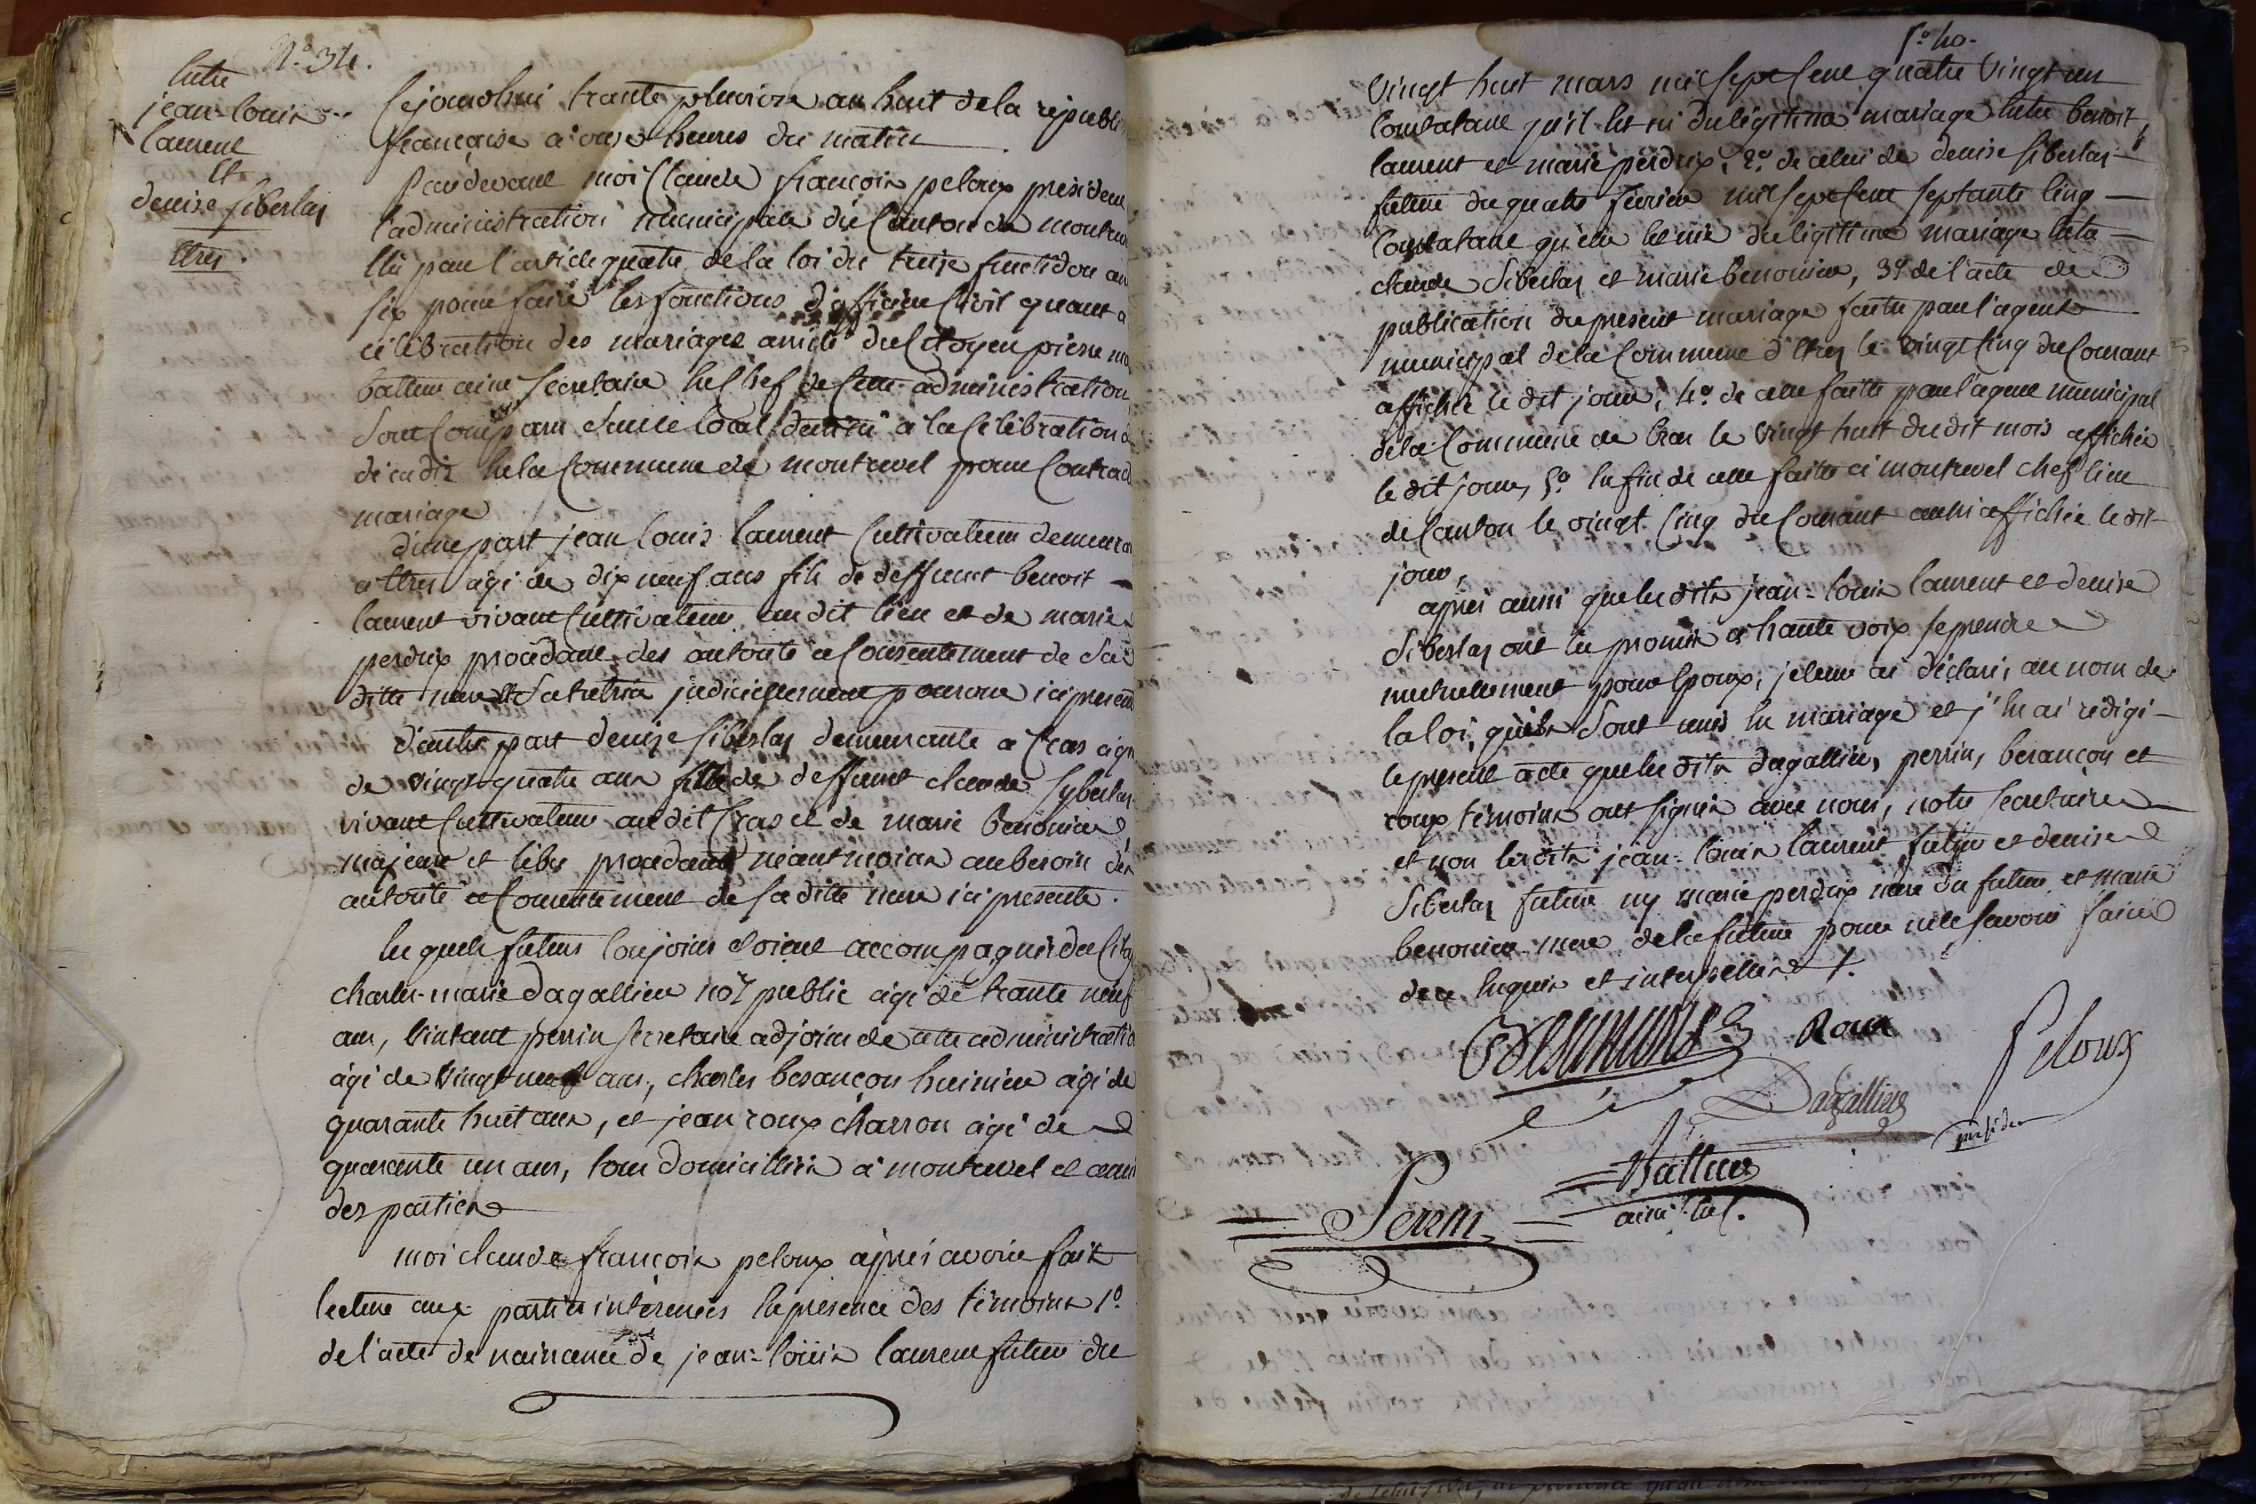 N.° 34.
Entre
jean-louis
laurent
et
denise siberlas
Etres.
Cejourdhui trante pluviose an huit de la républi
française à onze heures du matin
Pardevant moi Claude françois peloux président
l'administration municipale du Canton de montre
Elu par l'article quatre de la loi du treize fructidor an
six pour faire les fonctions d'officier Civil quant a
célébration des mariages assisté du Citoyen pierre
battur ainé secretaire en Chef de cette administration
sont comparu dans le local destiné à la Célébration
décadis en la Commune de montrevel pour Contract
mariage
d'une part jean louis laurent Cultivateur demeura
a Etres âgé de dix neuf ans fils de deffunt benoit
laurent vivant Cultivateur au dit lieu et de marie
perdrix procédant des autorité et Consentement de Sa
ditte mere et Sa tutrice judiciairement pourvue ici présen
d'autre part denise siberlas demeurante a Cras agée
de vingt quatre ans fille de deffunt claude Syberlas
vivant Cultivateur au dit Cras et de marie benoniere
majeure et libre procédant néantmoins au besoin des
autorité et Consentement de sa ditte mere ici presente.
les quels futurs Conjoints étoient accompagnés du Citoy
charles-marie dagallier no.re public âgé de trante neuf
ans, vintant perrin secretaire adjoint de cette administratio
âgé de vingt neuf ans, charles besançon huissier âgé de
quarante huit ans, et jean roux charron âgé de
quarante un ans, tous domicilliés à montrevel et amis
des parties
moi claude françois peloux après avoir fait
lecture aux parties intéressées en presence des témoins 1.°
de l'acte de naissance de jean-louis laurent futur du
f.° 40.
vingt huit mars mil sept Cent quatre vingt un
Constatant qu'il est né du légitime mariage entre benoit
laurent et marie perdrix, 2.° de celui de denise siberlas
future du quatre février mil sept Cent septante Cinq
Constatant qu'elle est née du légitime mariage entre
claude Siberlas et marie benoniere, 3.° de l'acte de
publication du present mariage faite par l'agent
municipal de la Commune d'Etres le vingt Cinq du Courant
affichée le dit jour, 4.° de celle faitte par l'agent municipal
de la Commune de Cras le vingt huit du dit mois affichée
le dit jour, 5.° enfin de celle faitte à montrevel chef lieu
de Canton le vingt Cinq du Courant aussi affichée le dit
jour,
après aussi que les dits jean-louis laurent et denise
Siberlas ont eu promis a haute voix se prendre
mutuellement pour Epoux, je leur ai déclaré, au nom de
la loi, qu'ils Sont unis en mariage et j'en ai rédigé
le present acte que les dits dagallier, perrin, besançon et
roux témoins ont signés avec nous, notre secretaire
et non les dits jean-louis laurent futur et denise
Siberlas future ny marie perdrix mere du futur et marie
benoniere mere de la future pour ne le savoir faire
de ce Enquis et interpellés
Roux
Peloux
Dagallier
présiden
Battur
ainé
Perrin